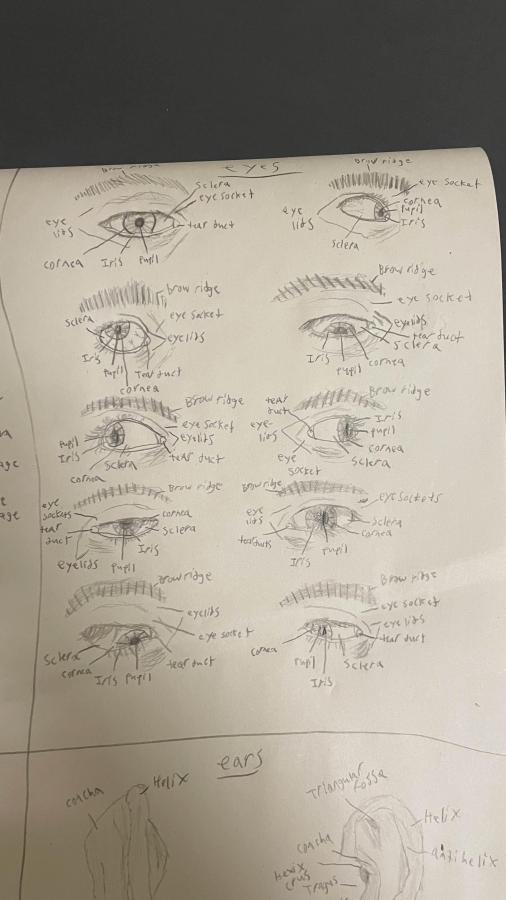 eyes
Brow ridge
Sclera
eye socket
eye
lids
tear duct
cornea
Iris
Pupil
Brow ridge
eye socket
cornea
Pupil
Iris
eye
lids
Sclera
brow ridge
Sclera
eye socket
eyelids
Iris
Pupil
Tear duct
cornea
Brow ridge
eye socket
eyelids
tear duct
Sclera
Iris
Pupil
cornea
Brow ridge
eye socket
eyelids
Pupil
Iris
Sclera
tear duct
cornea
tear
duct
Brow ridge
eye-
lids
Iris
Pupil
cornea
Sclera
eye
socket
Brow ridge
eye
sockets
cornea
tear
duct
Sclera
Iris
eyelids
Pupil
Brow ridge
eye sockets
eye
lids
Sclera
cornea
tearducts
Pupil
Iris
Brow ridge
eyelids
eye socket
Sclera
cornea
Iris
Pupil
tear duct
Brow ridge
eye socket
eyelids
tear duct
cornea
Pupil
Sclera
Iris
age
age
ears
concha
Helix
Triangular
fossa
Helix
concha
antihelix
crus
Tragus